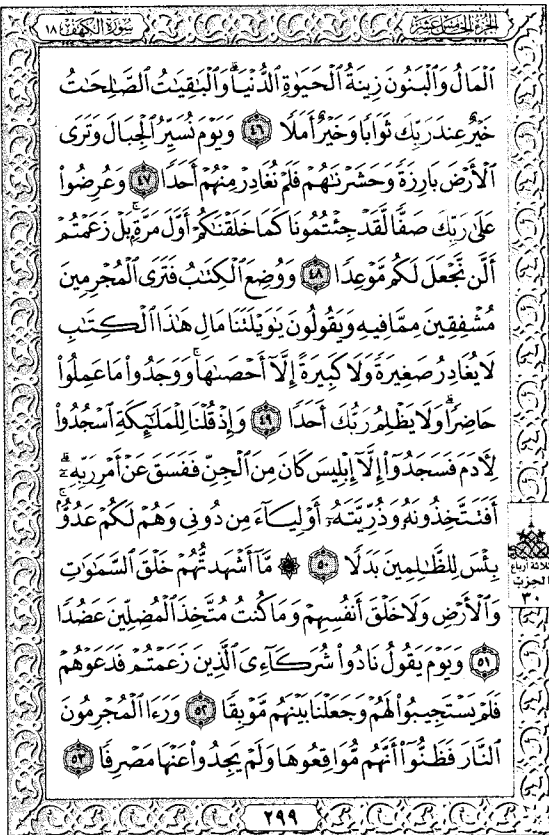 الجزء الخامس عشر
سورة الكهف ١٨
ٱلْمَالُ وَٱلْبَنُونَ زِينَةُ ٱلْحَيَوٰةِ ٱلدُّنْيَا ۖ وَٱلْبَٰقِيَٰتُ ٱلصَّٰلِحَٰتُ
خَيْرٌ عِندَ رَبِّكَ ثَوَابًا وَخَيْرٌ أَمَلًا ٤٦ وَيَوْمَ نُسَيِّرُ ٱلْجِبَالَ وَتَرَى
ٱلْأَرْضَ بَارِزَةً وَحَشَرْنَٰهُمْ فَلَمْ نُغَادِرْ مِنْهُمْ أَحَدًا ٤٧ وَعُرِضُوا۟
عَلَىٰ رَبِّكَ صَفًّا لَّقَدْ جِئْتُمُونَا كَمَا خَلَقْنَٰكُمْ أَوَّلَ مَرَّةٍۭ ۚ بَلْ زَعَمْتُمْ
أَلَّن نَّجْعَلَ لَكُم مَّوْعِدًا ٤٨ وَوُضِعَ ٱلْكِتَٰبُ فَتَرَى ٱلْمُجْرِمِينَ
مُشْفِقِينَ مِمَّا فِيهِ وَيَقُولُونَ يَٰوَيْلَتَنَا مَالِ هَٰذَا ٱلْكِتَٰبِ
لَا يُغَادِرُ صَغِيرَةً وَلَا كَبِيرَةً إِلَّآ أَحْصَىٰهَا ۚ وَوَجَدُوا۟ مَا عَمِلُوا۟
حَاضِرًا ۗ وَلَا يَظْلِمُ رَبُّكَ أَحَدًا ٤٩ وَإِذْ قُلْنَا لِلْمَلَٰٓئِكَةِ ٱسْجُدُوا۟
لِأَدَمَ فَسَجَدُوٓا۟ إِلَّآ إِبْلِيسَ كَانَ مِنَ ٱلْجِنِّ فَفَسَقَ عَنْ أَمْرِ رَبِّهِۦٓ ۗ
أَفَتَتَّخِذُونَهُۥ وَذُرِّيَّتَهُۥٓ أَوْلِيَآءَ مِن دُونِى وَهُمْ لَكُمْ عَدُوٌّۢ ۚ
بِئْسَ لِلظَّٰلِمِينَ بَدَلًا ٥٠ ۞ مَّآ أَشْهَدتُّهُمْ خَلْقَ ٱلسَّمَٰوَٰتِ
وَٱلْأَرْضِ وَلَا خَلْقَ أَنفُسِهِمْ وَمَا كُنتُ مُتَّخِذَ ٱلْمُضِلِّينَ عَضُدًا
٥١ وَيَوْمَ يَقُولُ نَادُوا۟ شُرَكَآءِىَ ٱلَّذِينَ زَعَمْتُمْ فَدَعَوْهُمْ
فَلَمْ يَسْتَجِيبُوا۟ لَهُمْ وَجَعَلْنَا بَيْنَهُم مَّوْبِقًا ٥٢ وَرَءَا ٱلْمُجْرِمُونَ
ٱلنَّارَ فَظَنُّوٓا۟ أَنَّهُم مُّوَاقِعُوهَا وَلَمْ يَجِدُوا۟ عَنْهَا مَصْرِفًا ٥٣
ثلاثة أرباع
الحزب
٣٠
٢٩٩